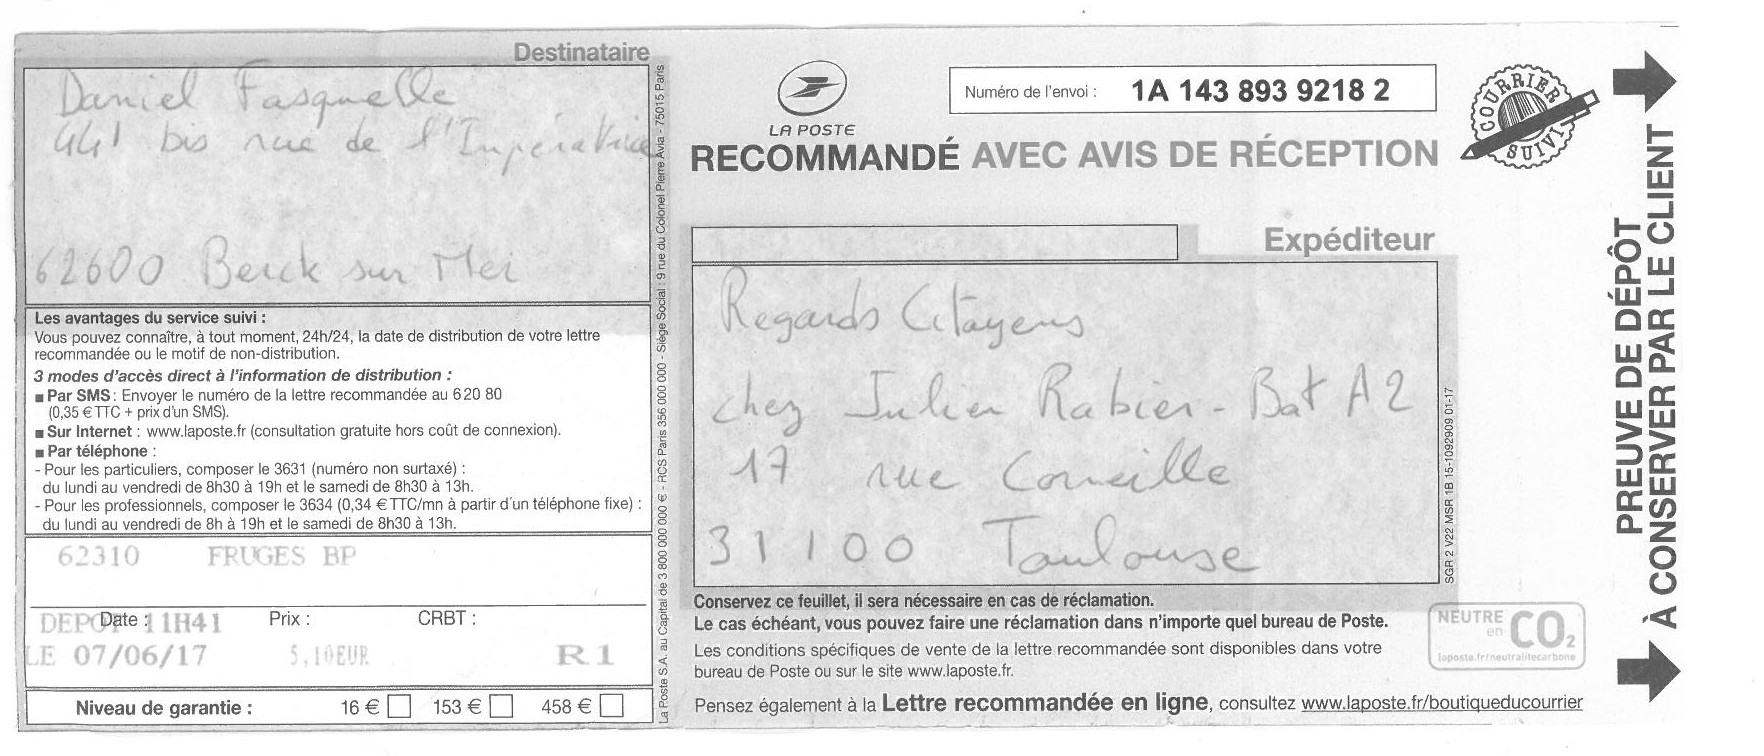 Destinataire
Daniel Fasquelle
441 bis rue de l'Impératrice
62600 Berck sur Mer
Les avantages du service suivi :
Vous pouvez connaître, à tout moment, 24h/24, la date de distribution de votre lettre
recommandée ou le motif de non-distribution.
3 modes d'accès direct à l'information de distribution :
■ Par SMS : Envoyer le numéro de la lettre recommandée au 6 20 80
(0,35 € TTC + prix d'un SMS).
■ Sur Internet : www.laposte.fr (consultation gratuite hors coût de connexion).
■ Par téléphone :
- Pour les particuliers, composer le 3631 (numéro non surtaxé) :
du lundi au vendredi de 8h30 à 19h et le samedi de 8h30 à 13h.
- Pour les professionnels, composer le 3634 (0,34 € TTC/mn à partir d'un téléphone fixe) :
du lundi au vendredi de 8h à 19h et le samedi de 8h30 à 13h.
62310 FRUGES BP
Date : Prix : CRBT :
DEPOT 11H41
LE 07/06/17 5,10EUR R1
Niveau de garantie : 16 € 153 € 458 €
La Poste S.A. au Capital de 3 800 000 000 € - RCS Paris 356 000 000 - Siège Social : 9 rue du Colonel Pierre Avia - 75015 Paris
LA POSTE
Numéro de l'envoi : 1A 143 893 9218 2
COURRIER SUIVI
RECOMMANDÉ AVEC AVIS DE RÉCEPTION
Expéditeur
Regards Citoyens
chez Julien Rabier - Bat A2
17 rue Corneille
31100 Toulouse
SGR 2 V22 MSR 1B 15-1092909 01-17
Conservez ce feuillet, il sera nécessaire en cas de réclamation.
Le cas échéant, vous pouvez faire une réclamation dans n'importe quel bureau de Poste.
Les conditions spécifiques de vente de la lettre recommandée sont disponibles dans votre
bureau de Poste ou sur le site www.laposte.fr.
Pensez également à la Lettre recommandée en ligne, consultez www.laposte.fr/boutiqueducourrier
NEUTRE
en CO2
laposte.fr/neutralitecarbone
PREUVE DE DÉPÔT
À CONSERVER PAR LE CLIENT